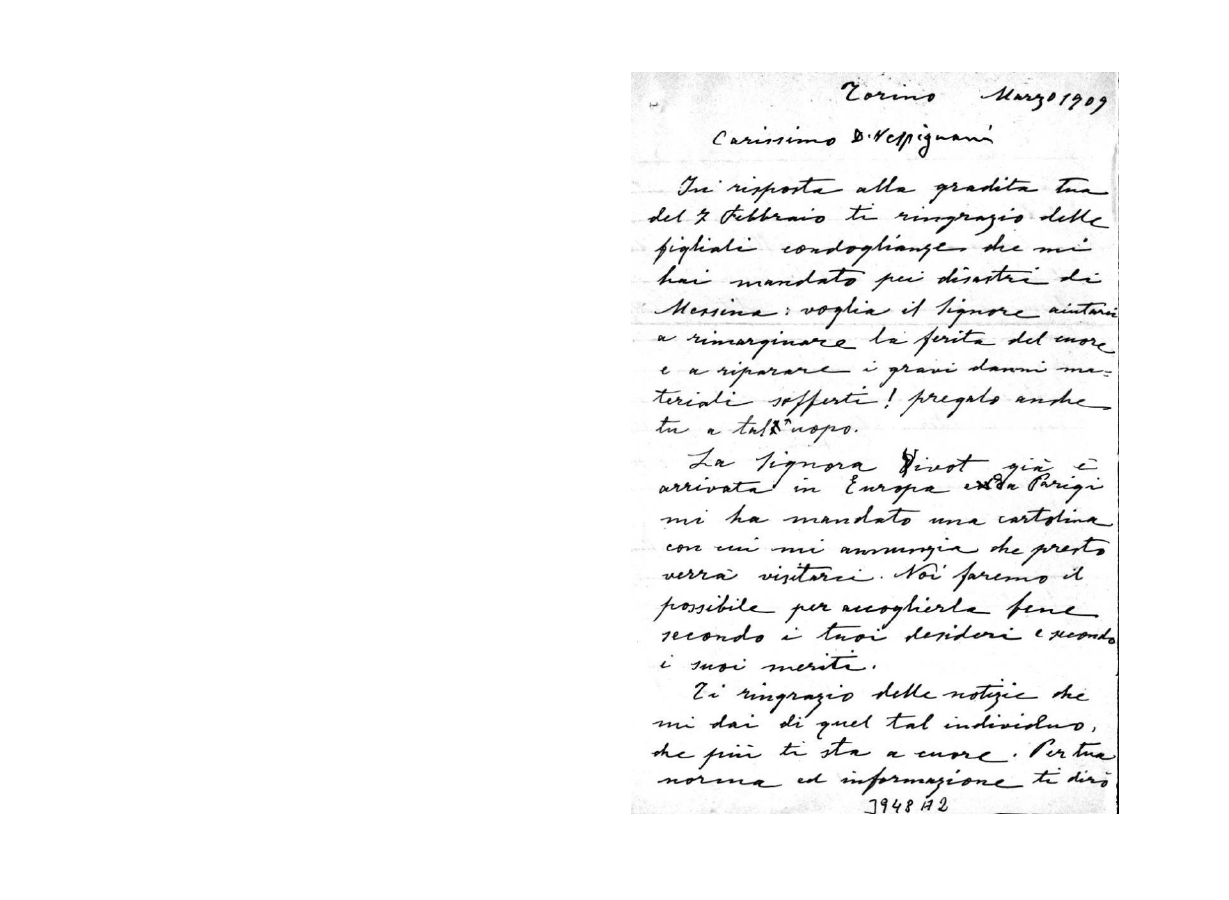 Torino Marzo 1909
Carissimo D. Vespignani
In risposta alla gradita tua
del 7 Febbraio ti ringrazio delle
figliali condoglianze che mi
hai mandato pei disastri di
Messina: voglia il Signore aiutarci
a rimarginare la ferita del cuore
e a riparare i gravi danni ma=
teriali sofferti! pregalo anche
tu a tal uopo.
La Signora Vivot già è
arrivata in Europa e da Parigi
mi ha mandato una cartolina
con cui mi annunzia che presto
verrà visitarci. Noi faremo il
possibile per accoglierla bene
secondo i tuoi desideri e secondo
i suoi meriti.
Ti ringrazio delle notizie che
mi dai di quel tal individuo,
che più ti sta a cuore. Per tua
norma ed informazione ti dirò
3948 A2